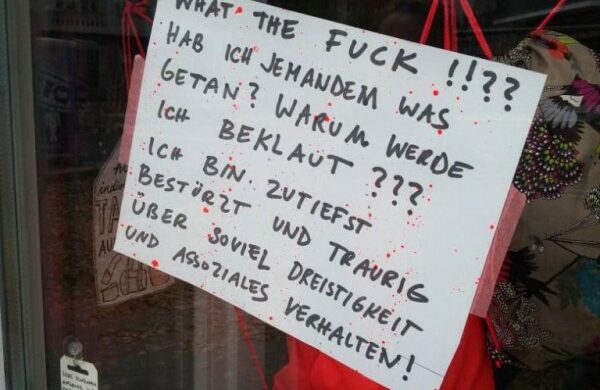 WHAT THE FUCK !!??
HAB ICH JEMANDEM WAS
GETAN? WARUM WERDE
ICH BEKLAUT ???
ICH BIN ZUTIEFST
BESTÜRZT UND TRAURIG
ÜBER SOVIEL DREISTIGKEIT
UND ASSOZIALES VERHALTEN!